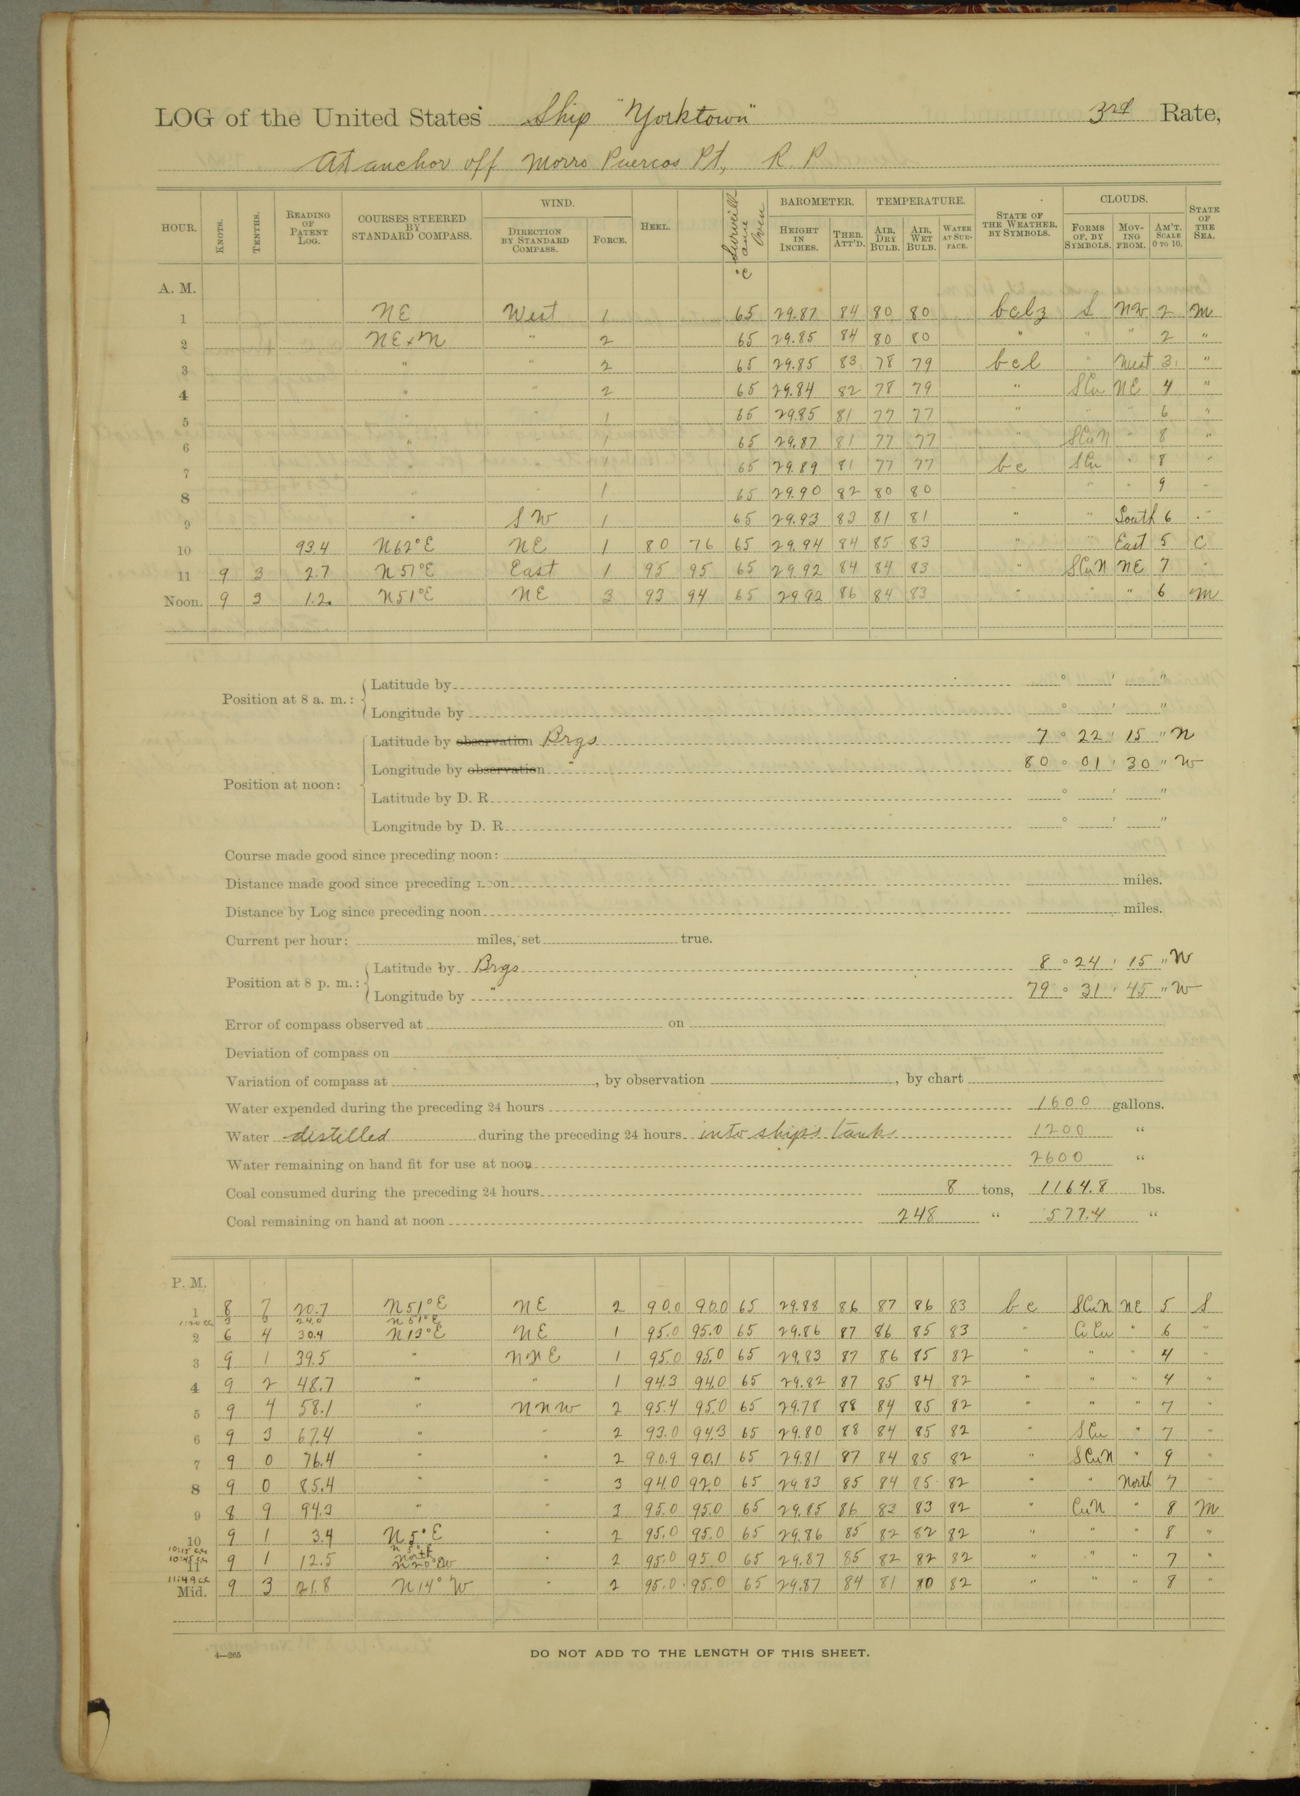 LOG of the United States Ship "Yorktown" 3rd Rate,
At anchor off Morro Puercos Pt, R. P.
HOUR. KNOTS. TENTHS. READING OF PATENT LOG. COURSES STEERED BY STANDARD COMPASS. WIND. DIRECTION BY STANDARD COMPASS. FORCE. HEEL. BAROMETER. HEIGHT IN INCHES. THER. ATT'D. TEMPERATURE. AIR, DRY BULB. AIR, WET BULB. WATER AT SURFACE. STATE OF THE WEATHER, BY SYMBOLS. CLOUDS. FORMS OF, BY SYMBOLS. MOVING FROM. AM'T. SCALE 0 TO 10. STATE OF THE SEA.
A. M.
1 NE West 1 65 29.87 84 80 80 bclz S NW 2 M
2 NExN " 2 65 29.85 84 80 80 " " " 2 "
3 " " 2 65 29.85 83 78 79 bcl " West 3 "
4 " " 2 65 29.84 82 78 79 " SCu NE 4 "
5 " " 1 65 29.85 81 77 77 " " " 6 "
6 " " 1 65 29.87 81 77 77 " SCuN " 8 "
7 " " 1 65 29.89 81 77 77 bc SCu " 8 "
8 " " 1 65 29.90 82 80 80 " " " 9 "
9 " SW 1 65 29.93 83 81 81 " " South 6 "
10 93.4 N62°E NE 1 80 76 65 29.94 84 85 83 " " East 5 C
11 9 3 2.7 N51°E East 1 95 95 65 29.92 84 84 83 " SCuN NE 7 "
Noon. 9 3 1.2 N51°E NE 3 93 94 65 29.92 86 84 83 " " " 6 M
Position at 8 a. m.: Latitude by ° ' "
Longitude by ° ' "
Latitude by observation Brgs 7 ° 22 ' 15 " N
Position at noon: Longitude by observation " 80 ° 01 ' 30 " W
Latitude by D. R. ° ' "
Longitude by D. R. ° ' "
Course made good since preceding noon:
Distance made good since preceding noon miles.
Distance by Log since preceding noon miles.
Current per hour: miles, set true.
Position at 8 p. m.: Latitude by Brgs 8 ° 24 ' 15 " N
Longitude by " 79 ° 31 ' 45 " W
Error of compass observed at on
Deviation of compass on
Variation of compass at , by observation , by chart
Water expended during the preceding 24 hours 1600 gallons.
Water distilled during the preceding 24 hours into ships tanks 1200 "
Water remaining on hand fit for use at noon 2600 "
Coal consumed during the preceding 24 hours 8 tons, 1164.8 lbs.
Coal remaining on hand at noon 248 " 577.4 "
P. M.
1 8 7 20.7 N51°E NE 2 90.0 90.0 65 29.88 86 87 86 83 bc SCuN NE 5 S
24.0 N51°E
2 6 4 30.4 N13°E NE 1 95.0 95.0 65 29.86 87 86 85 83 " CiCu " 6 "
3 9 1 39.5 " NNE 1 95.0 95.0 65 29.83 87 86 85 82 " " " 4 "
4 9 2 48.7 " " 1 94.3 94.0 65 29.82 87 85 84 82 " " " 4 "
5 9 4 58.1 " NNW 2 95.4 95.0 65 29.78 88 84 85 82 " " " 7 "
6 9 3 67.4 " " 2 93.0 94.3 65 29.80 88 84 85 82 " SCu " 7 "
7 9 0 76.4 " " 2 90.9 90.1 65 29.81 87 84 85 82 " SCuN " 9 "
8 9 0 85.4 " " 3 94.0 92.0 65 29.83 85 84 85 82 " " North 7 "
9 8 9 94.3 " " 3 95.0 95.0 65 29.85 86 83 83 82 " CuN " 8 M
10 9 1 3.4 N5°E " 2 95.0 95.0 65 29.86 85 82 82 82 " " " 8 "
N5°E
North
11 9 1 12.5 N20°W " 2 95.0 95.0 65 29.87 85 82 82 82 " " " 7 "
Mid. 9 3 21.8 N14°W " 2 95.0 95.0 65 29.87 84 81 80 82 " " " 8 "
4—265
DO NOT ADD TO THE LENGTH OF THIS SHEET.